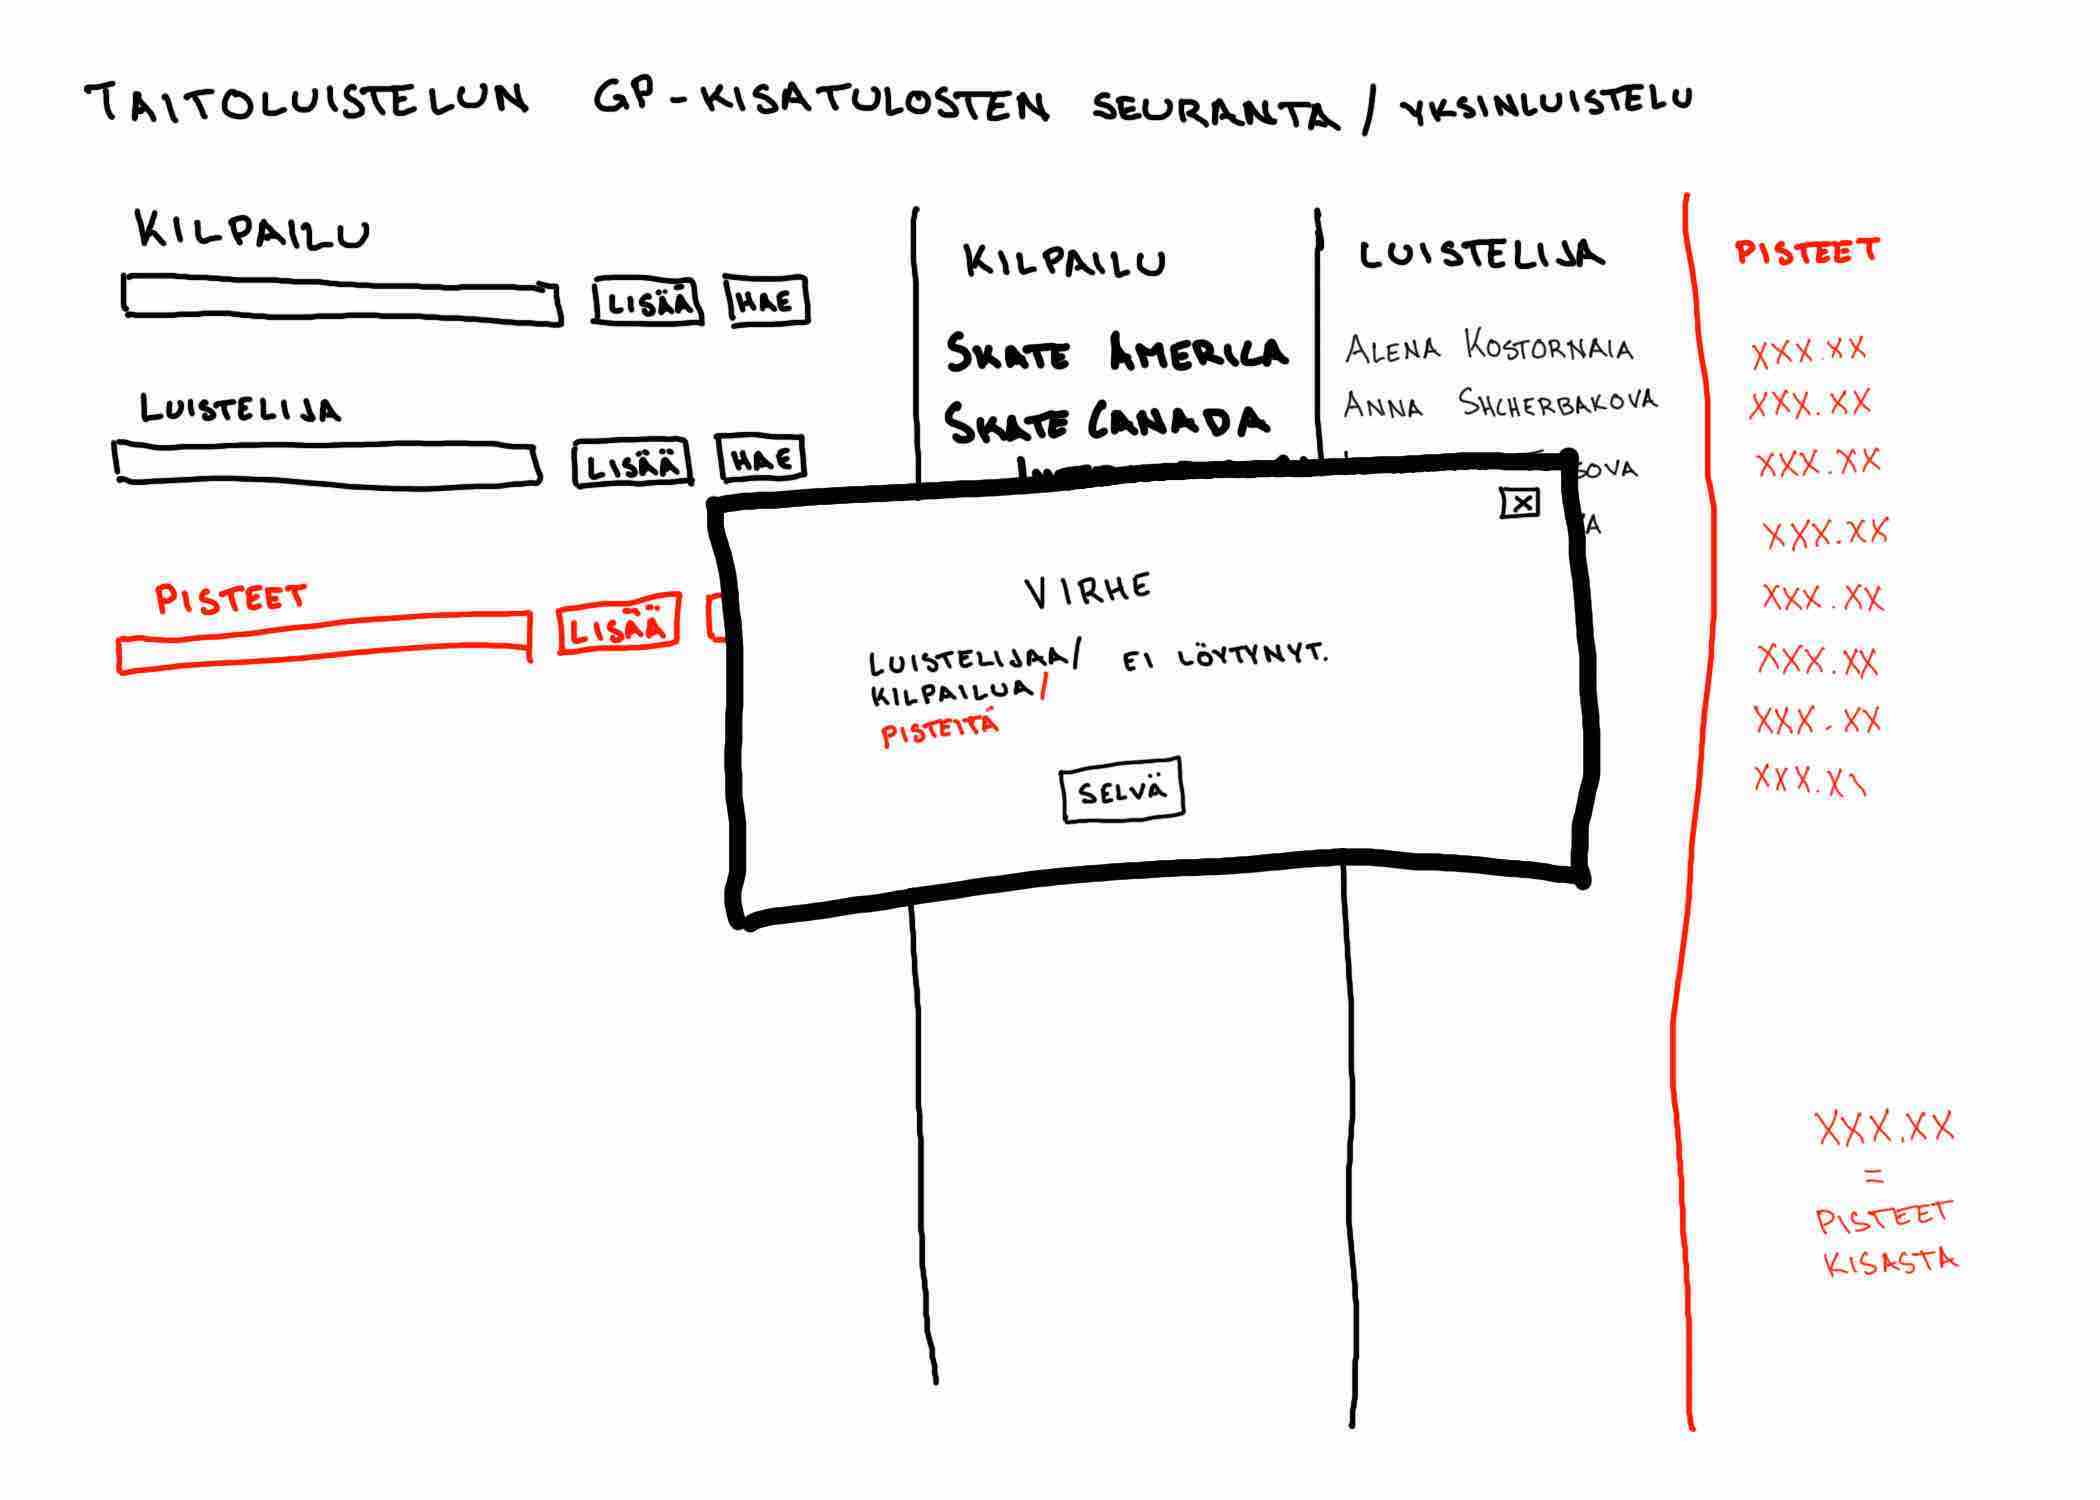 TAITOLUISTELUN GP-KISATULOSTEN SEURANTA / YKSINLUISTELU
KILPAILU
LISÄÄ HAE
LUISTELIJA
LISÄÄ HAE
PISTEET
LISÄÄ
KILPAILU
SKATE AMERICA
SKATE CANADA
LUISTELIJA
ALENA KOSTORNAIA
ANNA SHCHERBAKOVA
SOVA
VA
PISTEET
XXX.XX
XXX.XX
XXX.XX
XXX.XX
XXX.XX
XXX.XX
XXX.XX
XXX.XX
X
VIRHE
LUISTELIJAA/ EI LÖYTYNYT.
KILPAILUA/
PISTEITÄ
SELVÄ
XXX.XX
=
PISTEET
KISASTA